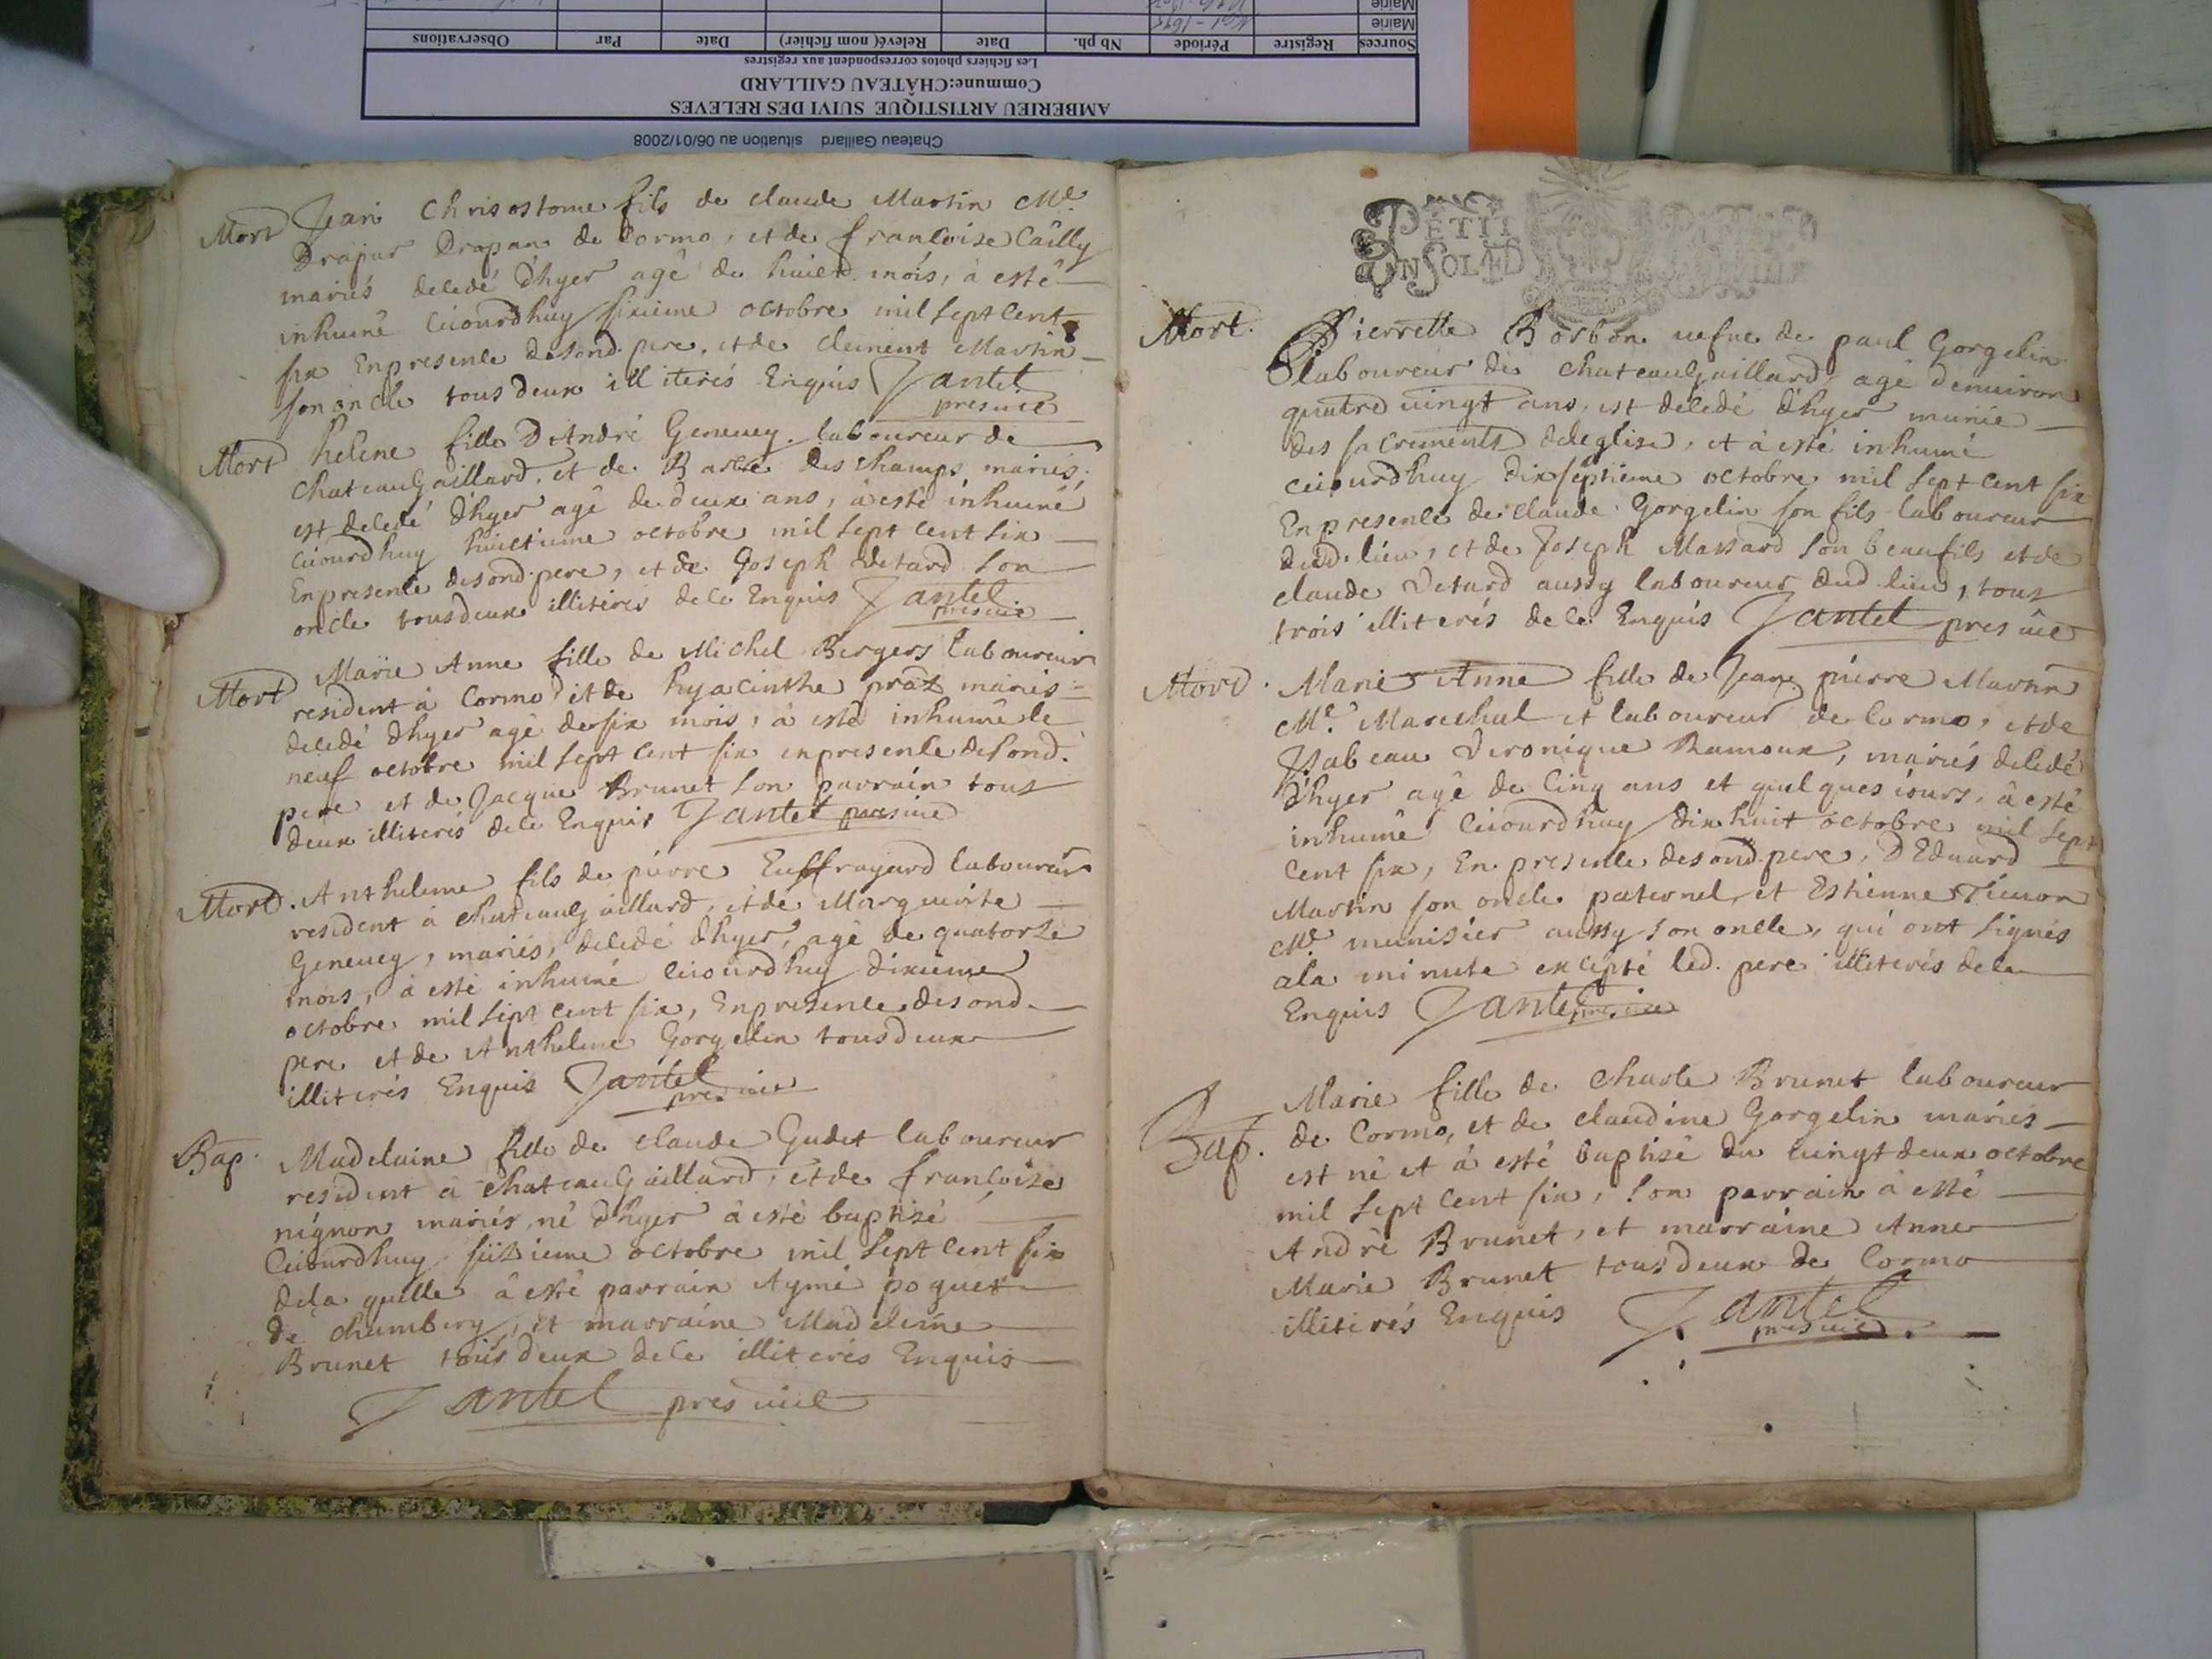 Chateau Gaillard situation au 06/01/2008
AMBERIEU ARTISTIQUE SUIVI DES RELEVES
Commune:CHÂTEAU GAILLARD
Les fichiers photos correspondent aux registres
Sources Registre Période Nb ph. Date Relevé( nom fichier) Date Par Observations
Mairie
Mairie
Mort Jean Chrisostome fils de claude Martin Me.
Drapan de Cormo, et de francoise Cailly
mariés decedé d'hyer agé de huict mois, à esté
inhumé ciiourdhuy sixieme octobre mil sept cent
six En presence desond. pere, et de clement Martin
son oncle tous deux illiterés Enquis Jantet
pres vic
Mort helene fille D'André Geneuey laboureur de
chateauGaillard, et de Barbe des champs mariés,
est decedé d'hyer agé de deux ans, à esté inhumé
ciiourdhuy huictieme octobre mil sept cent six
En presence desond. pere, et de Joseph Vetard son
oncle tous deux illiterés dece Enquis Jantet
pres vic
Mort Marie Anne fille de Michel Bergers laboureur
resident à Cormo et de hyacinthe prâz mariés
decedé d'hyer agé de six mois, à esté inhumé le
neuf octobre mil sept cent six en presence desond.
pere et de Jacque Brunet son parrain tous
deux illiterés dece Enquis Jantet pres vic
Mort. Anthelme fils de pierre Euffrayard laboureur
resident à chateauGaillard, et de Marguerite
Geneuey, mariés, decedé d'hyer, agé de quatorze
mois, à esté inhumé ciiourdhuy dixieme
octobre mil sept cent six, En presence desond.
pere et de Anthelme Gorgelin tous deux
illiterés Enquis Jantet
pres vic
Bap. Madelaine fille de claude Gudet laboureur
resident à chateauGaillard, et de francoise
nignon mariés, né d'hyer à esté baptisé
Ciiourdhuy seizieme octobre mil sept cent six
dela quelle à esté parrain Aymé poguet
de chambery, et marraine Madeleine
Brunet tous deux dece illiterés Enquis
Jantet pres vic
PETIT PAPIER
UN SOL
Mort. Pierrette Borbon uefue de paul Gorgelin
laboureur de chateauGaillard, agé d'enuiron
quatre uingt ans, est decedé d'hyer munie
des sacrements deleglise, et à esté inhumé
ciiourdhuy dix septieme octobre mil sept cent six
En presence de claude Gorgelin son fils laboureur
dud. lieu, et de Joseph Massard son beaufils et de
claude Vetard aussy laboureur dud lieu, tous
trois illiterés dece Enquis Jantet pres vic
Mort. Marie Anne fille de Jean pierre Martin
Me. Mareschal et laboureur de Cormo, et de
Isabeau Veronique Ramoux, mariés decedé
d'hyer agé de Cinq ans et quelques iours, à esté
inhumé Ciiourdhuy dix huit octobre mil sept
cent six, En presence desond. pere, D'Eduard
Martin son oncle paternel, et Estienne
Me munisier aussy son oncle, qui ont signés
ala minute excepté led. pere illiterés dece
Enquis Jantet pres vic
Bap. Marie fille de charle Brunet laboureur
de Cormo, et de claudine Gorgelin mariés
est né et à esté baptisé du uingt deux octobre
mil sept cent six, son parrain à esté
André Brunet, et marraine Anne
Marie Brunet tous deux de Cormo
illiterés Enquis Jantet
pres vic